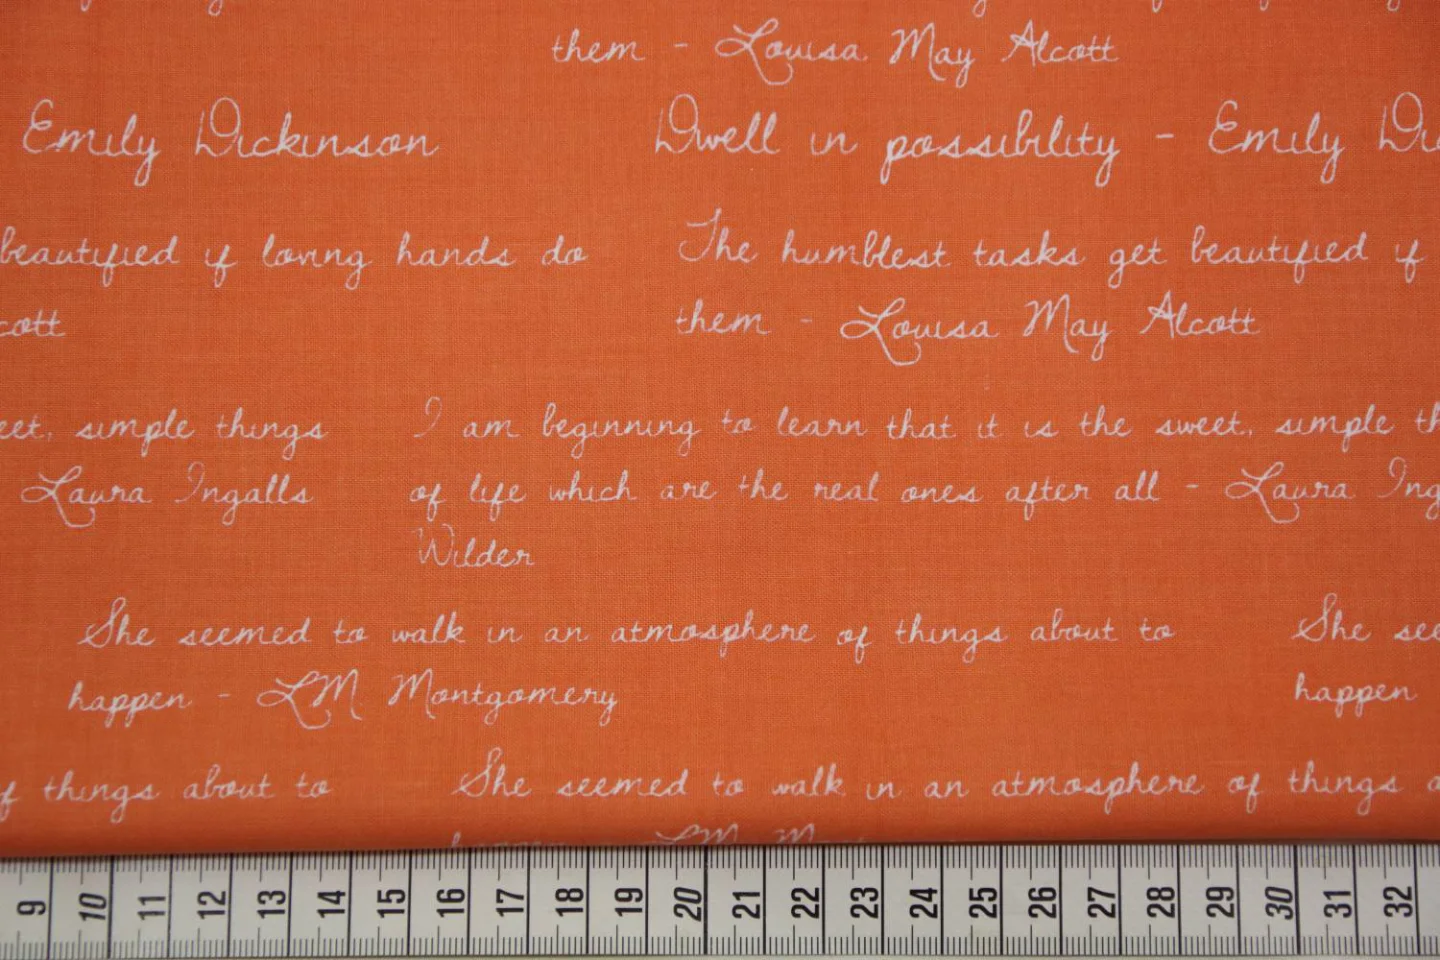 them - Louisa May Alcott
Emily Dickinson Dwell in possibility - Emily Di
beautified if loving hands do The humblest tasks get beautified if
cott them - Louisa May Alcott
eet, simple things I am beginning to learn that it is the sweet, simple th
Laura Ingalls of life which are the real ones after all - Laura Ing
Wilder
She seemed to walk in an atmosphere of things about to She see
happen - LM Montgomery happen
f things about to She seemed to walk in an atmosphere of things a
happen LM M
9 10 11 12 13 14 15 16 17 18 19 20 21 22 23 24 25 26 27 28 29 30 31 32